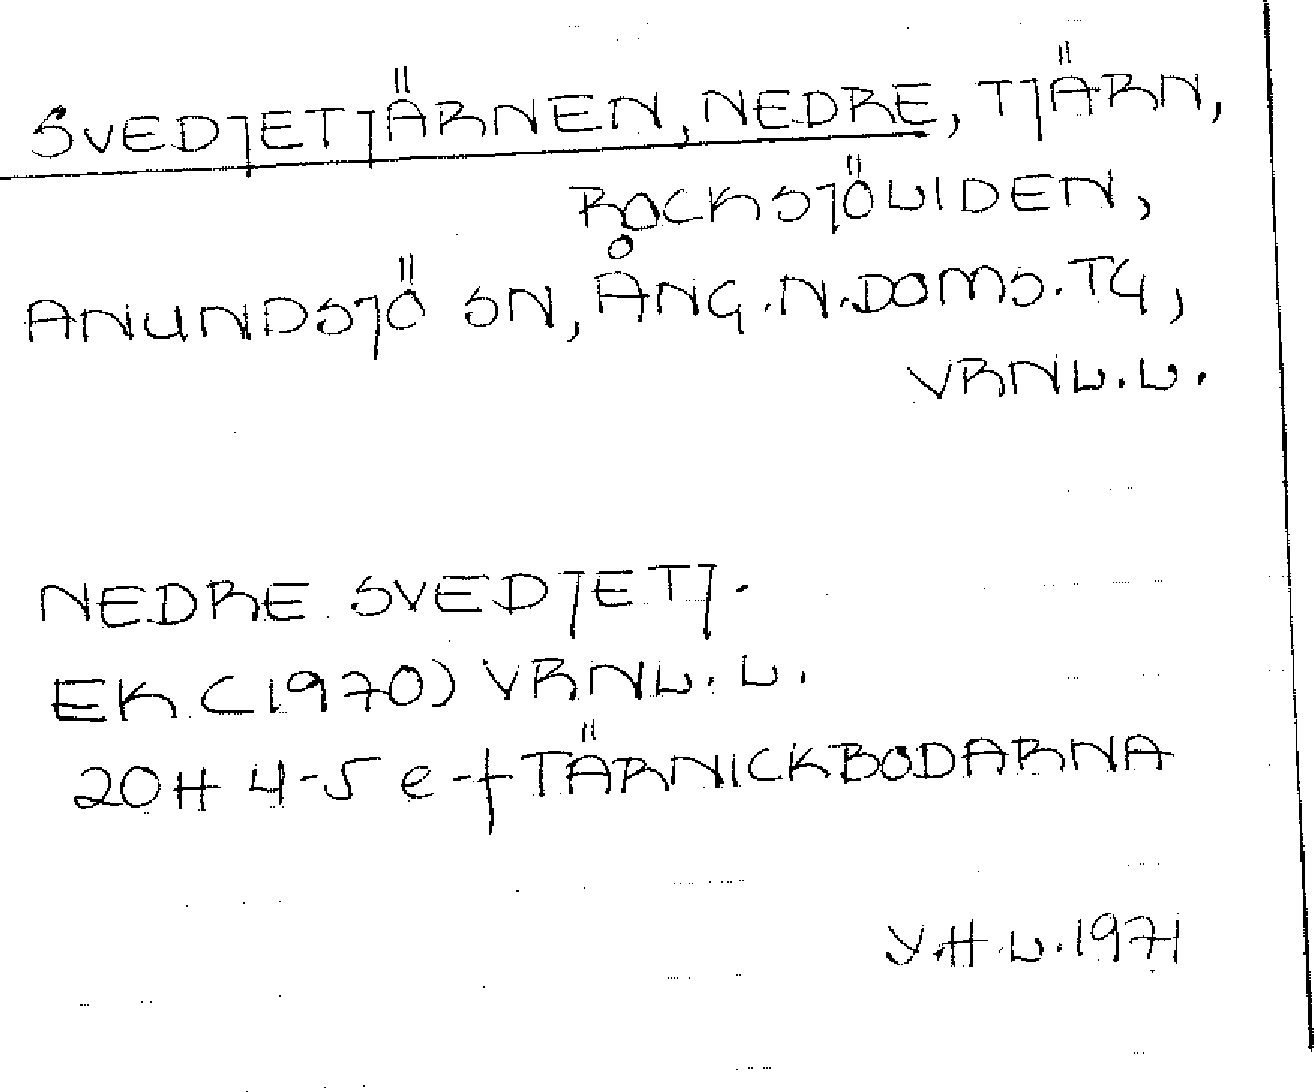 SVEDJETJÄRNEN, NEDRE, TJÄRN,
ROCKSJÖLIDEN,
ANUNDSJÖ SN, ÅNG.N.DOMS.TG,
VRNL.L.
NEDRE SVEDJETJ.
EK (1970) VRNL.L.
20H 4-5 e-f TÄRNICKBODARNA
Y.H.L.1971